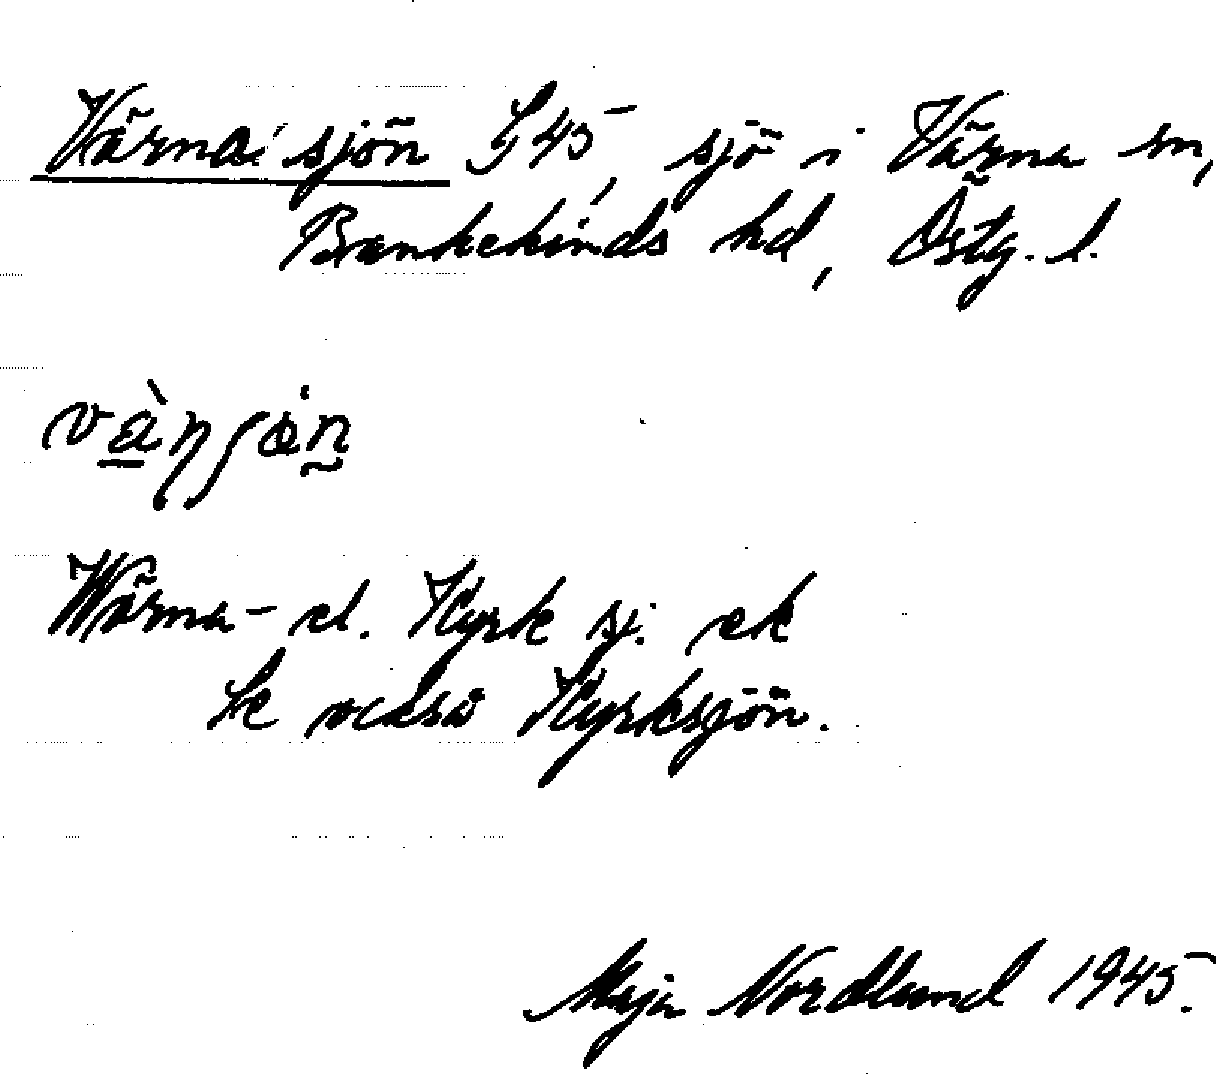 Värna sjön G 45, sjö i Värna sn,
Bankekinds hd, Östg. l.
Wärna- el. Kyrk sj. ek
Se också Kyrksjön.
Maja Nordlund 1945.